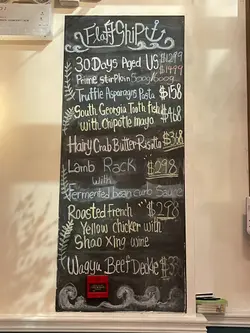 Flagship
30 Days Aged US $1299
Prime Sirploin 500g/600g $1499
Truffle Asparagus Pasta $158
South Georgia Tooth fish $468
with Chipotle mayo
Hairy Crab Butter Risotto $368
Lamb Rack $298
with
Fermented bean curb Sauce
Roasted French $298
Yellow chicken with
Shao Xing wine
Wagyu Beef Deckle